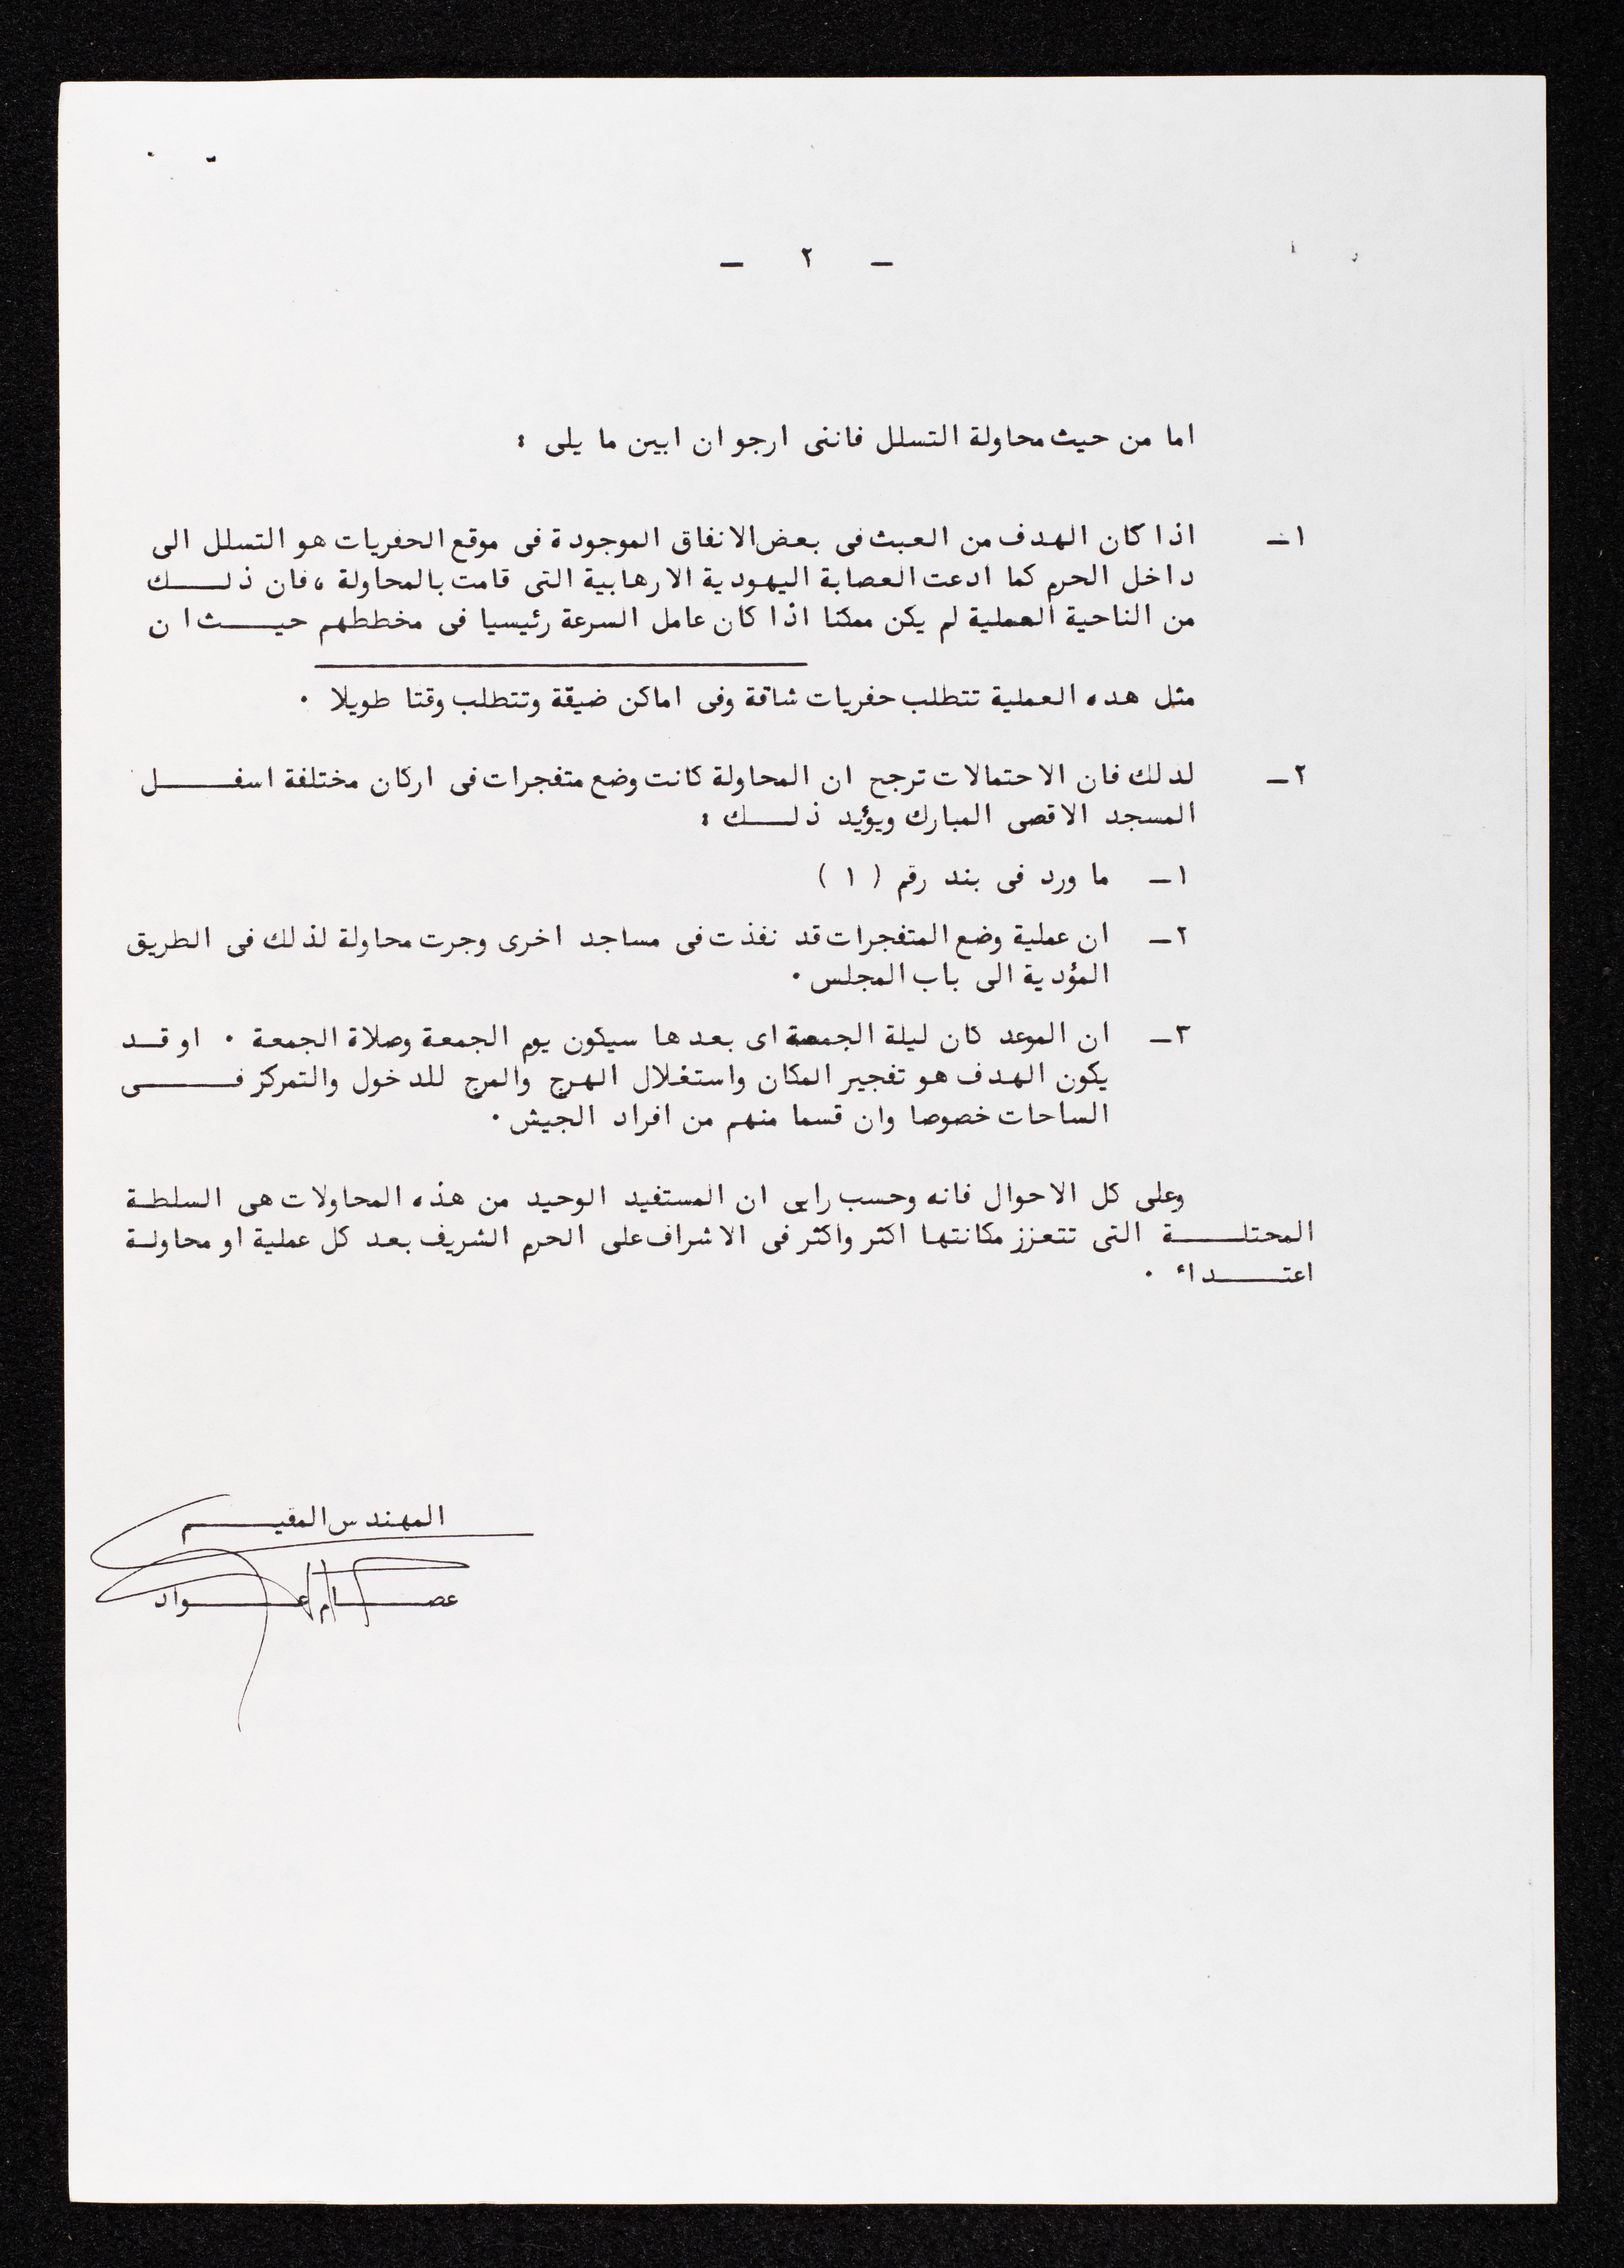 - ٢ -
اما من حيث محاولة التسلل فاننى ارجو ان ابين ما يلى :
١- اذا كان الهدف من العبث فى بعض الانفاق الموجودة فى موقع الحفريات هو التسلل الى
داخل الحرم كما ادعت العصابة اليهودية الارهابية التى قامت بالمحاولة ، فان ذلــــك
من الناحية العملية لم يكن ممكنا اذا كان عامل السرعة رئيسيا فى مخططهم حيـــث ان
مثل هده العملية تتطلب حفريات شاقة وفى اماكن ضيقة وتتطلب وقتا طويلا .
٢- لدلك فان الاحتمالات ترجح ان المحاولة كانت وضع متفجرات فى اركان مختلفة اسفــــل
المسجد الاقصى المبارك ويؤيد ذلــــك :
١- ما ورد فى بند رقم ( ١ )
٢- ان عملية وضع المتفجرات قد نفذت فى مساجد اخرى وجرت محاولة لذلك فى الطريق
المؤدية الى باب المجلس .
٣- ان الموعد كان ليلة الجمعة اى بعدها سيكون يوم الجمعة وصلاة الجمعة . او قــد
يكون الهدف هو تفجير المكان واستغلال الهرج والمرج للدخول والتمركز فـــــى
الساحات خصوصا وان قسما منهم من افراد الجيش .
وعلى كل الاحوال فانه وحسب رايى ان المستفيد الوحيد من هذه المحاولات هى السلطـة
المحتلـــــة التى تتعزز مكانتها اكثر واكثر فى الاشراف على الحرم الشريف بعد كل عملية او محاولـة
اعتـــــداء .
المهندس المقيـــــم
عصـــــام عـــــواد